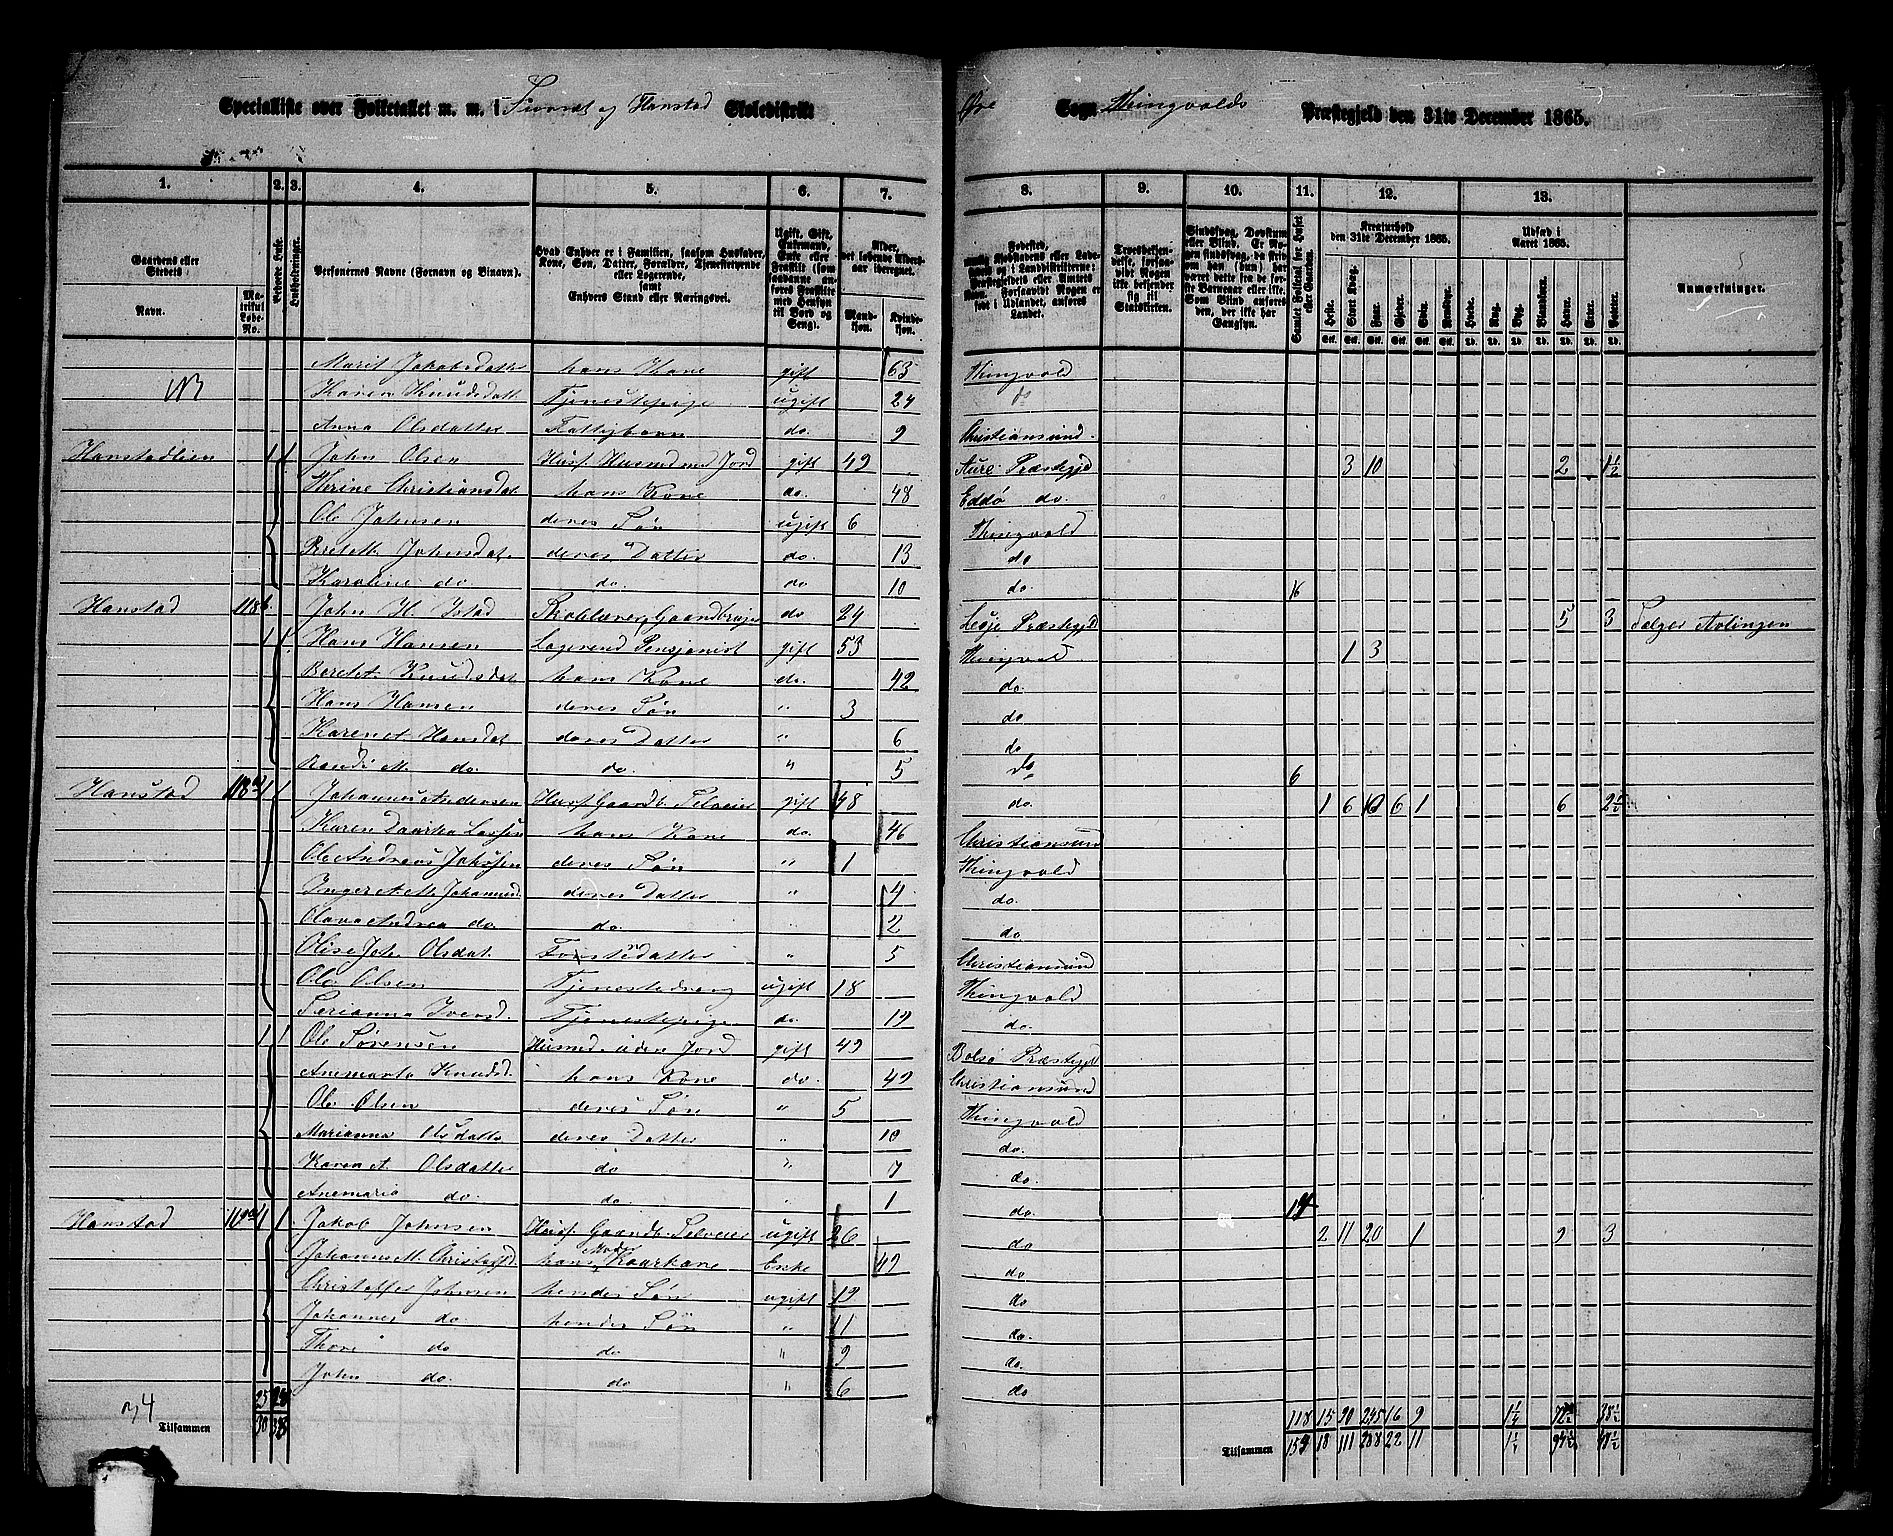 Specialliste over Folketallet m. m. i Sivaset og Hanstad Skoledistrikt Øre Sogn Thingvolds Præstegjeld den 31te December 1865.
1. 2. 3. 4. 5. 6. 7. 8. 9. 10. 11. 12. 13.
Gaardens eller Stedets Navn. Matrikul Løbe-No. Beboede Huse. Husholdninger. Personernes Navne (Fornavn og Binavn). Hvad Enhver er i Familien, saasom Husfader, Kone, Søn, Datter, Forældre, Tjenestetyende eller Logerende, samt Enhvers Stand eller Næringsvei. Ugift, Gift, Enkemand, Enke eller Fraskilt (som saadanne anføres Fraskilte med Hensyn til Bord og Seng). Alder, det løbende Alders-aar iberegnet. Mandkjøn. Kvindekjøn.
Kreaturhold den 31te December 1865. Udsæd i Aaret 1865. Anmærkninger.
Marit Jakobsdatter hans Kone gift 63 Thingvold
Karen Knudsdatt Tjenestepige ugift 24 do
Anna Olsdatter Fattigbarn do. 9 Christiansund.
Hanstadlien 1 1 John Olsen Husf. Husmd med Jord gift 49 Aure Præstegjd 3 10 2 1½
Thrine Christiansdat hans Kone do. 48 Eddø do.
Ole Johnsen deres Søn ugift 6 Thingvold
Beret M. Johnsdat. deres Datter do. 13 do
Karoline do. do. do 10 do. 16
Hanstad 118b John H. Istad Skolelærer, Gaardbruger do 24 Lesje Præstegjd 5 3 Sælger Avlingen
1 1 Hans Hansen Logerend Pensjonist gift 53 Thingvold 1 3
Beret A. Knudsdat hans Kone do. 42 do.
Hans Hansen deres Søn " 3 do
Karen A. Hansdat deres Datter " 6 do
Randi M. do. do. " 5 do 6
Hanstad 118 1 1 Johannes Andersen Husf. Gaardb. Selveier gift 48 do. 1 6 10 6 1 6
Karen Daarthea Larsen hans Kone do. 46 Christiansund
Ole Andreas Johasen deres Søn " 1 Thingvold
Inger A. M. Johannesd. deres Datter " 4 do.
Olava Andrea do. do. 2 do.
Olise Joh. Olsdat. Fosterdatter " 5 Christiansund
Ole Olsen Tjenestedreng ugift 18 Thingvold
Serianna Iversd. Tjenestepige do. 19 do.
1 1 Ole Sørensen Husmd uden Jord gift 49 Bolsø Præstegjd
Anemarta Knudsd. hans Kone do. 42 Christiansund
Ole Olsen deres Søn " 5 Thingvold
Marianna Olsdatte deres Datter " 10 do.
Karen A. Olsdatter do " 7 do.
Anemaria do. do. " 1 do. 14
Hanstad 119 1 1 Jakob Johnsen Husf. Gaardb. Selveier ugift 26 do 2 11 20 1 9 3
Johannes M. Christoffd. hans Moder Kaarkone Enke 49 do.
Christoffer Johnsen hendes Søn ugift 19 do
Johannes do. hendes Søn " 11 do.
Thore do do " 9 do.
John do. do " 6 do
34 25 28 118 15 90 245 16 9 1¼ 38½
Tilsammen 30 33 Tilsammen 159 18 111 288 22 11 1¼ 94½ 48½